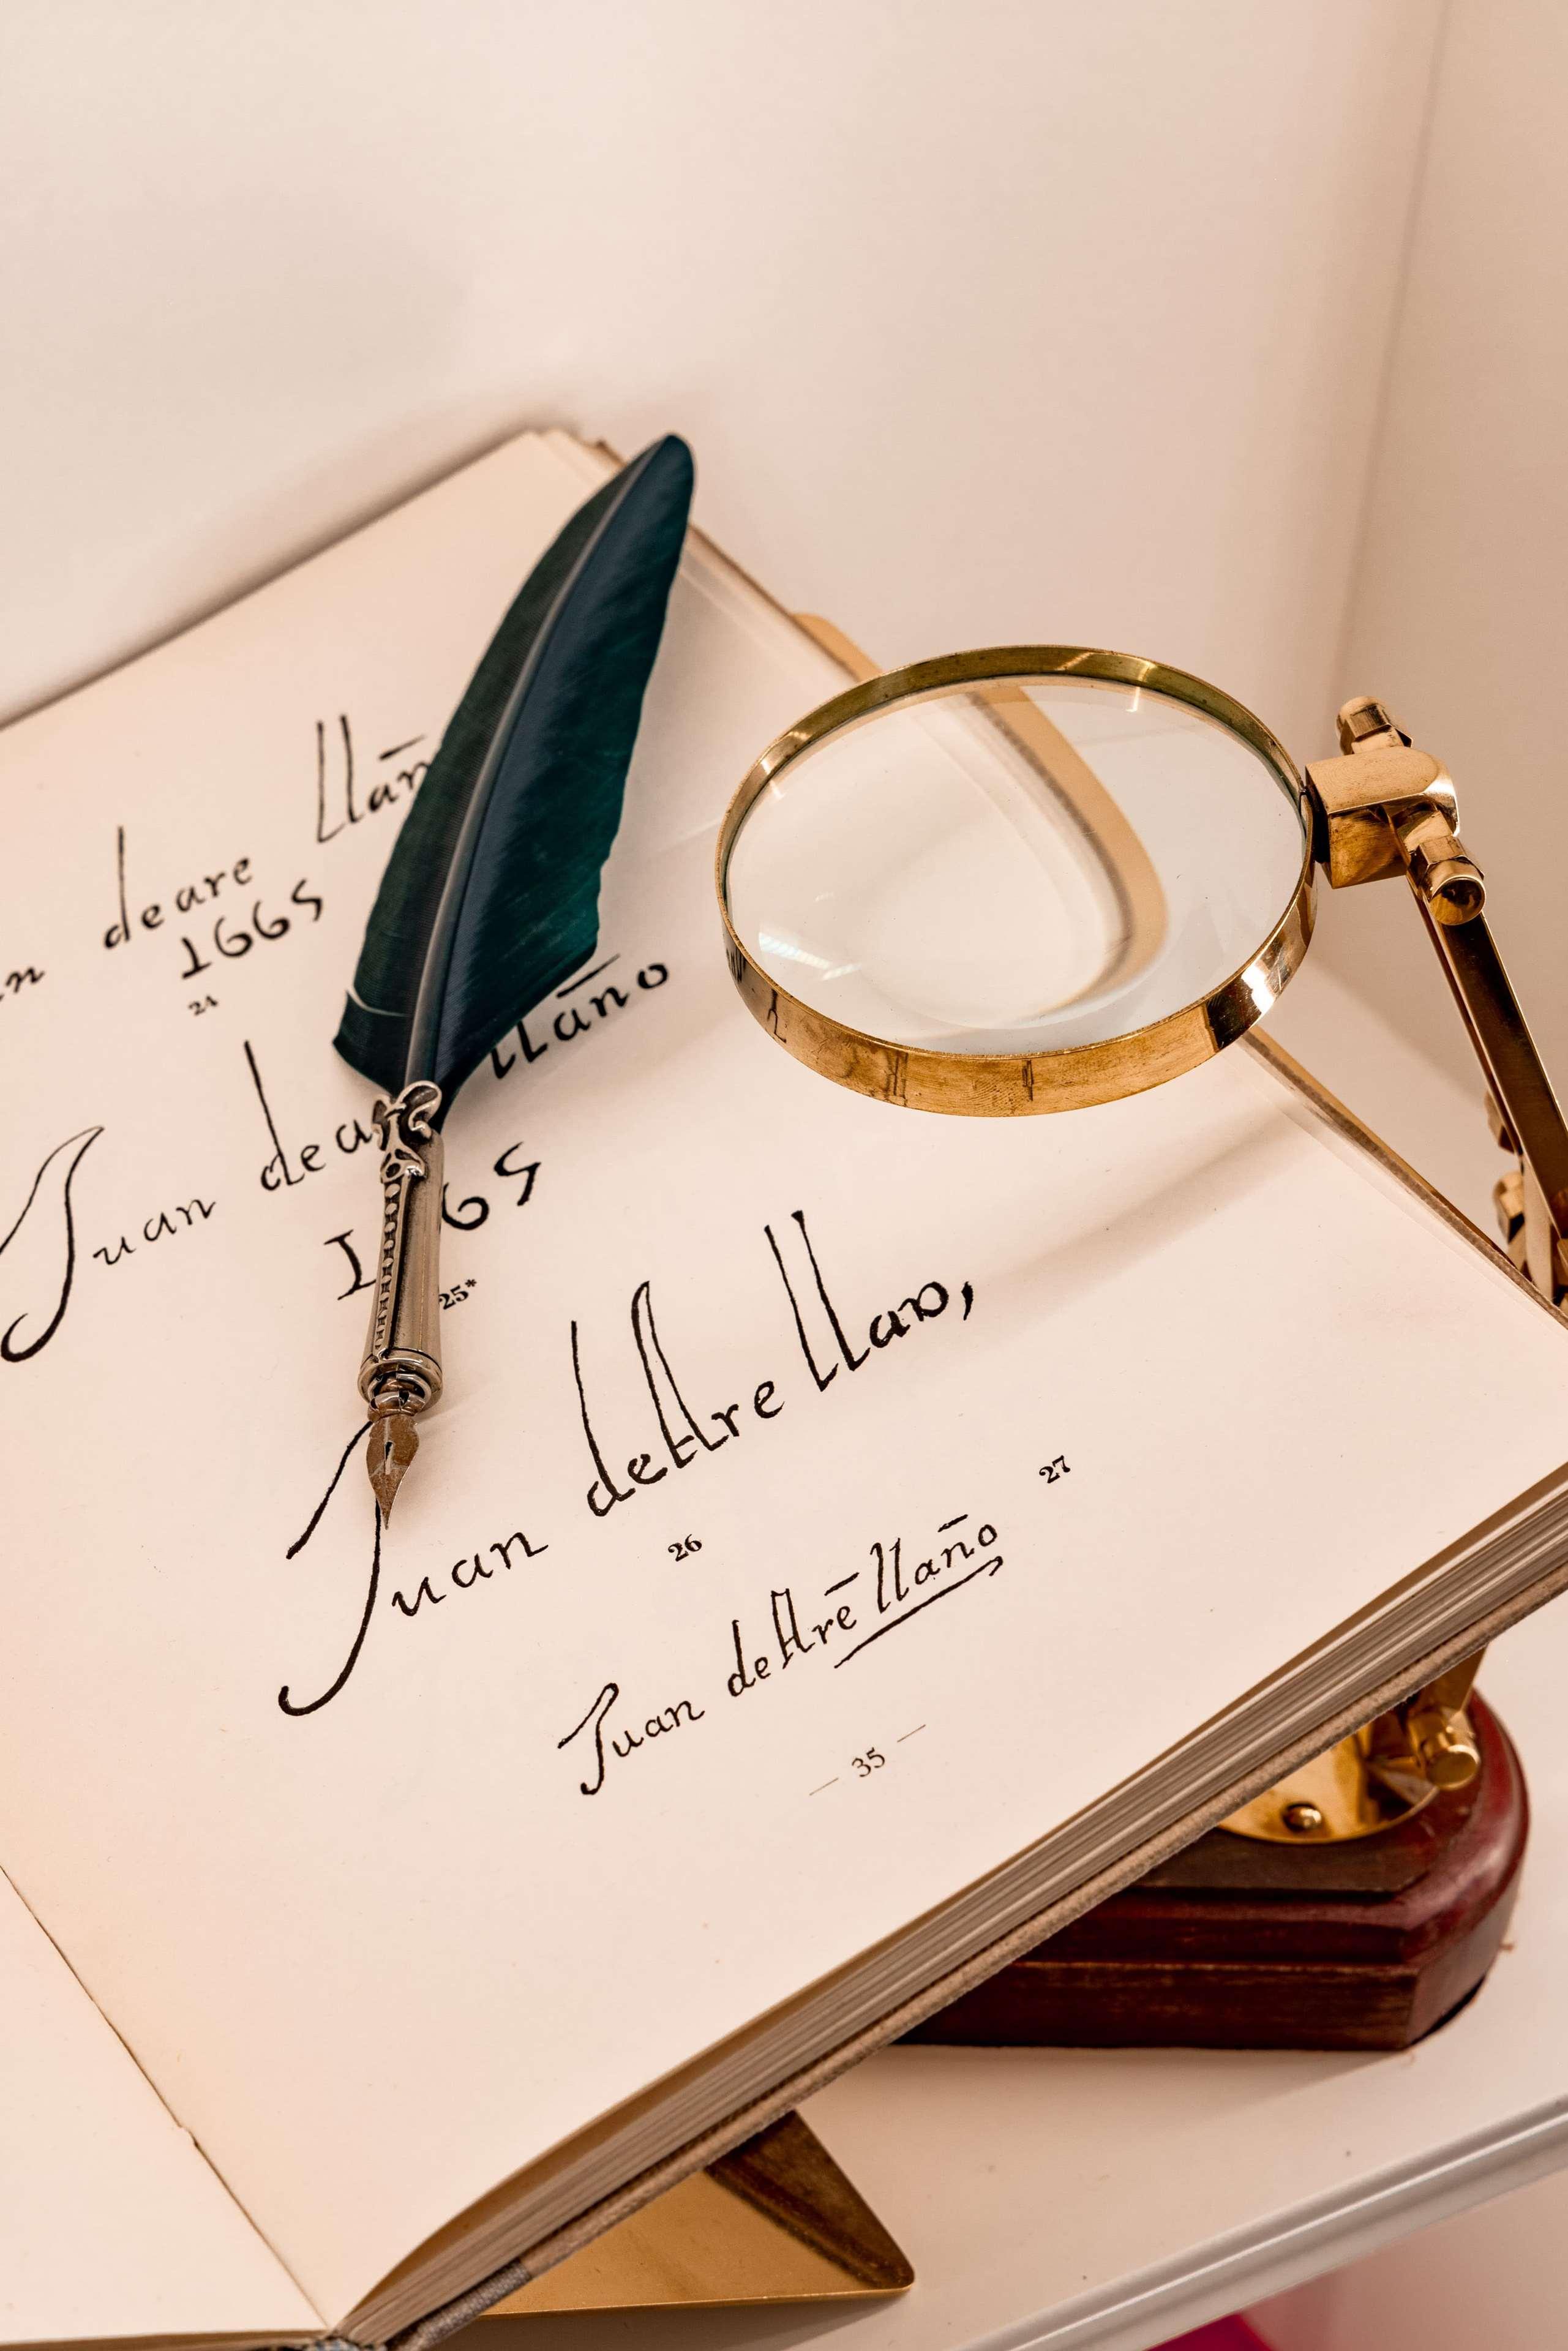 deare llan
1665
24
Juan dea llano
1 65
25*
Juan deAre llao,
26
27
Juan deAre llano
— 35 —